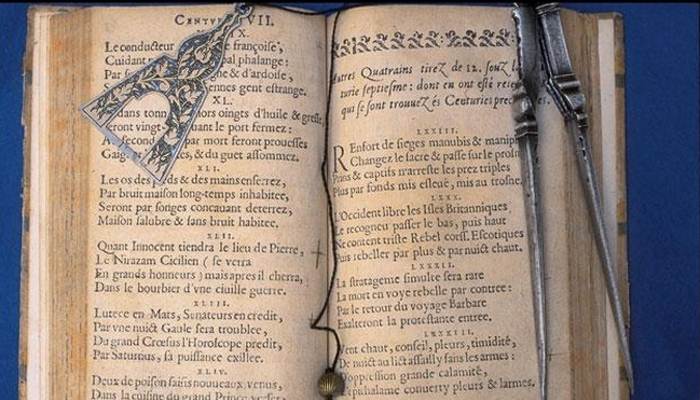 CENTVRIE VII.
X.
Le conducteur françoise,
Cuidant pal phalange:
Par & d'ardoise,
ennes gent estrange.
XL.
dans tonn hors oingts d'huile & gresse,
seront vingt uant le port fermez:
par mort feront prouesses
Gaig & du guet assommez.
XLI.
Les os des pieds & des mains enserrez,
Par bruit maison long-temps inhabitee,
Seront par songes concauant deterrez,
Maison salubre & sans bruit habitee.
XLII.
Quant Innocent tiendra le lieu de Pierre,
Le Nirazam Cicilien ( se verra
En grands honneurs ) mais apres il cherra,
Dans le bourbier d'vne ciuille guerre.
XLIII.
Lutece en Mars, Senateurs en credit,
Par vne nuict Gaule sera troublee,
Du grand Crœsus l'Horoscope predit,
Par Saturnus, sa puissance exillee.
XLIV.
Deux de poison saisis nouueaux venus,
Dans la cuisine du grand Prince verser
Autres Quatrains tirez de 12. souz la
turie septiesme: dont en ont esté
qui se sont trouuez és Centuries
LXXIII.
REnfort de sieges manubis &
Changez le sacre & passe sur le
Prins & captifs n'arreste les prez triples
Plus par fonds mis esleué, mis au trosne.
LXXX.
L'Occident libre les Isles Britanniques
Le recogneu passer le bas, puis haut
Ne content triste Rebel corss. Escotiques
Puis rebeller par plus & par nuict chaut.
LXXXII.
La stratageme simulte sera rare
La mort en voye rebelle par contree:
Par le retour du voyage Barbare
Exalteront la protestante entree.
LXXXIII.
Vent chaut, conseil, pleurs, timidité,
De nuict au lict assailly sans les armes:
D'oppression grande calamité,
L'epithalame conuerty pleurs & larmes.